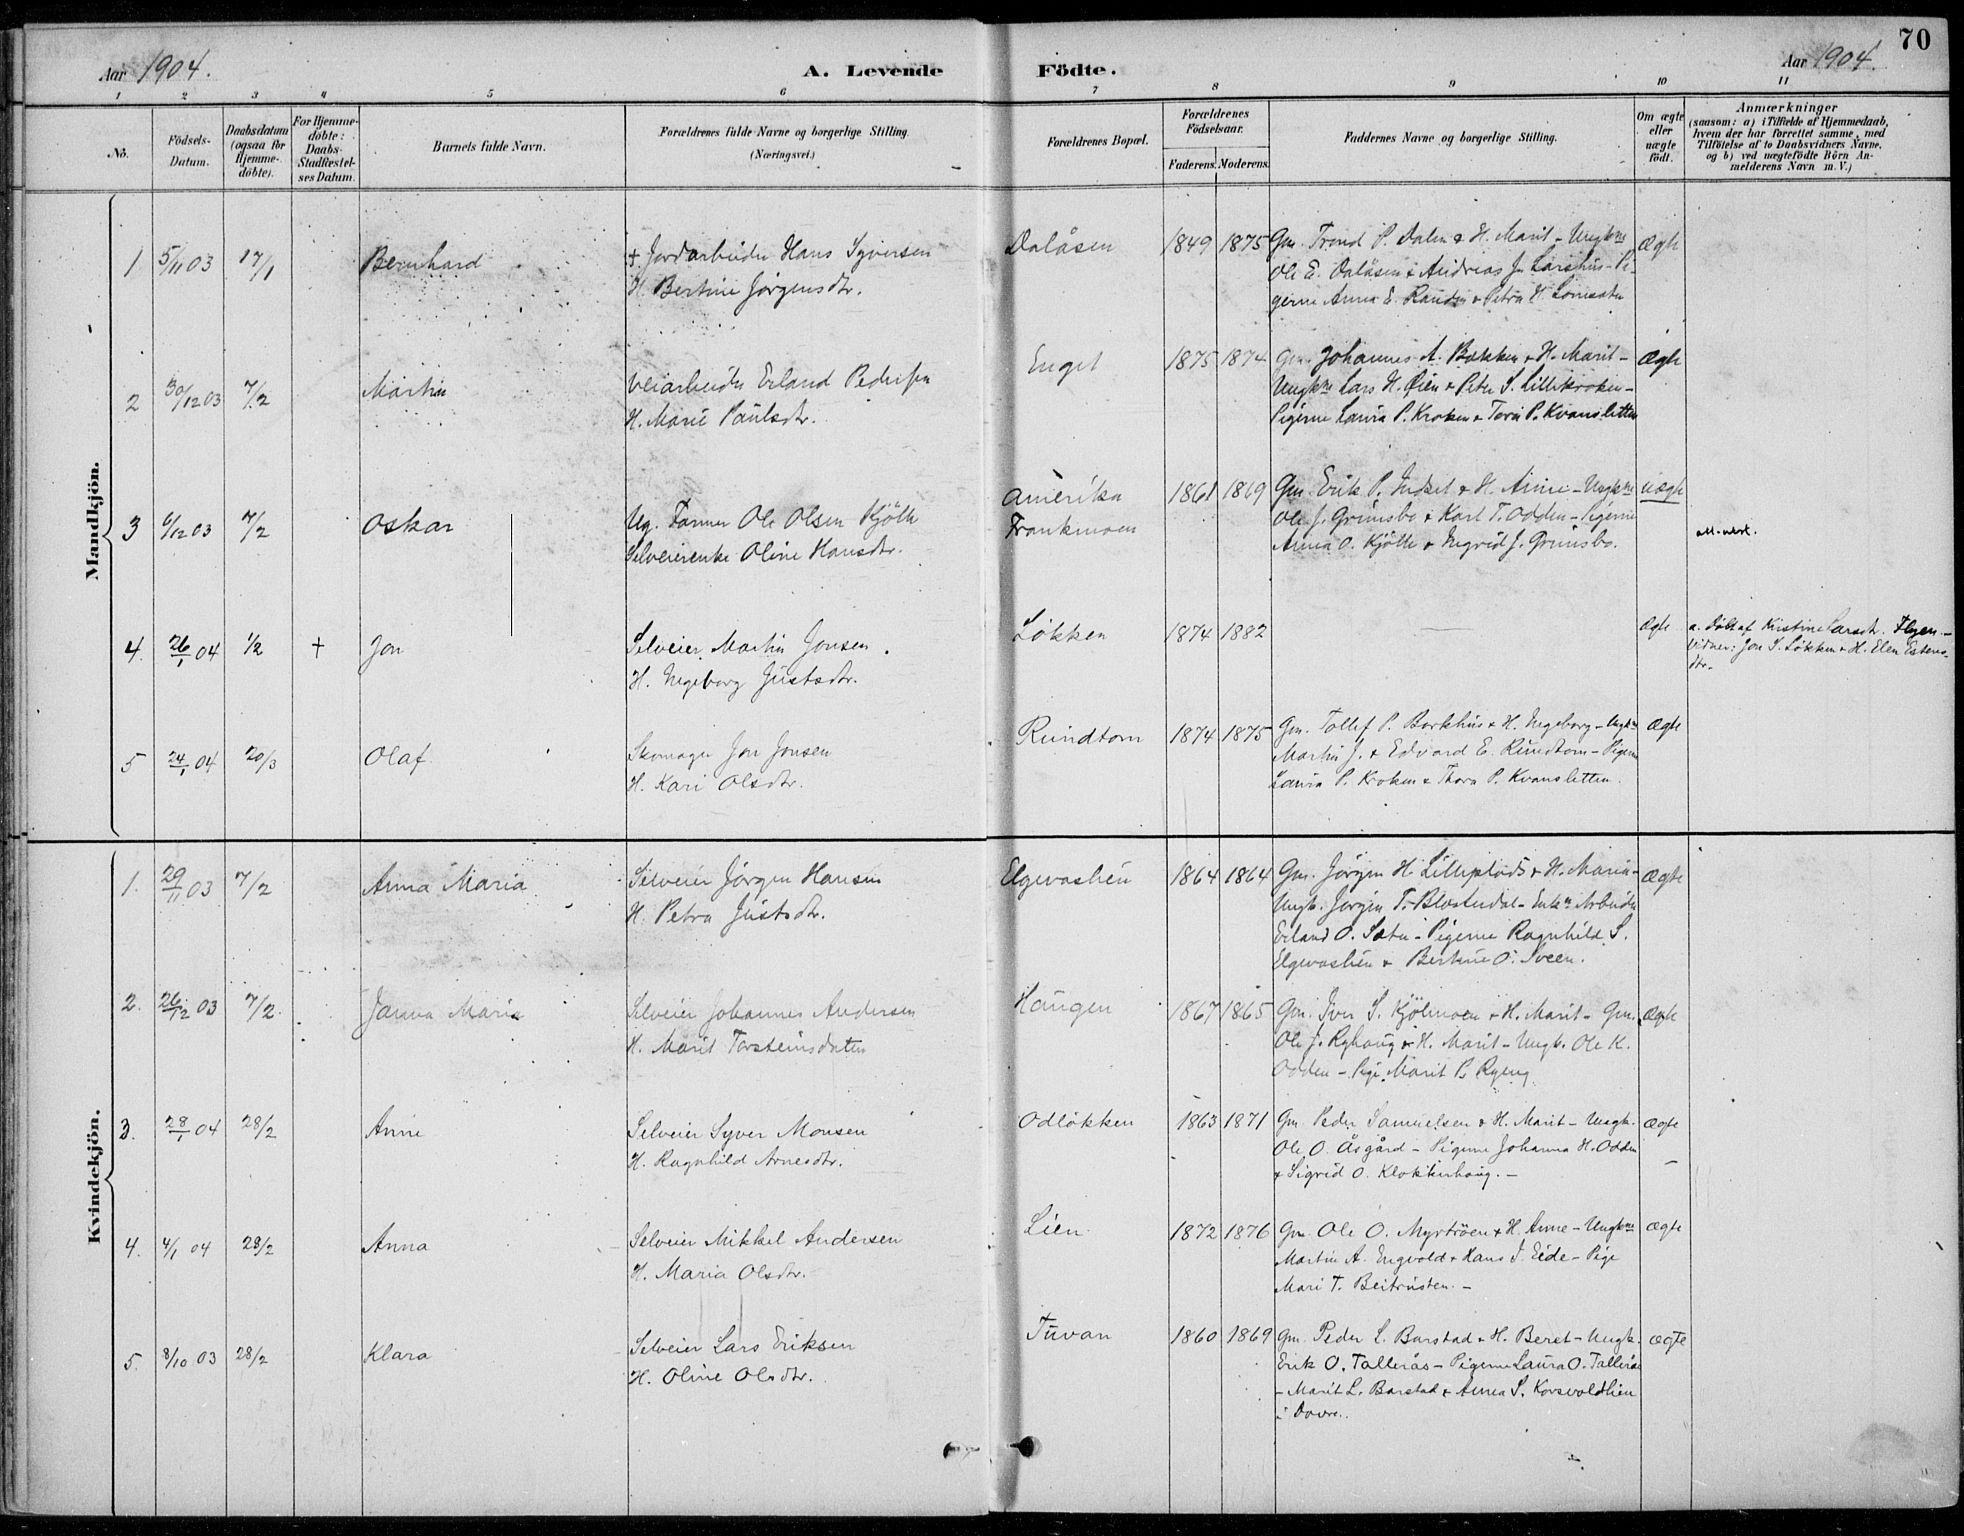 70
Aar 1904.
A. Levende Födte.
Aar 1904.
1 2 3 4 5 6 7 8 9 10 11
No.
Födsels-Datum.
Daabsdatum (ogsaa for Hjemme-döbte).
For Hjemme-döbte: Daabs-Stadfæstel-ses Datum.
Barnets fulde Navn.
Forældrenes fulde Navne og borgerlige Stilling.
(Næringsvei.)
Forældrenes Bopæl.
Forældrenes Födselsaar.
Faderens. Moderens.
Faddernes Navne og borgerlige Stilling.
Om ægte eller uægte födt.
Anmærkninger
(saasom: a) i Tilfælde af Hjemmedaab,
hvem der har forrettet samme, med
Tilföielse af to Daabsvidners Navne,
og b) ved uægtefödte Börn An-
melderens Navn m. V.)
Mandkjön.
1 5/11 03 17/1 Bernhard + Jordarbeider Hans Syversen Dalåsen 1849 1875 Gm. Trond P. Dalen & H. Marit - Ungkne Ægte
H. Bertine Jørgensdtr. Ole E. Dalåsen & Andreas J. Larshus - Pi-
gerne Anne E. Randen & Petra H. Lonseter
2 30/12 03 7/2 Martin Veiarbeider Erland Pedersen Enget 1875 1874 Gm. Johannes A. Bakken & H. Marit - Ægte
H. Marie Paulsdtr. Ungkne Lars H. Øien & Peter S. Lillekroken -
Pigerne Laura P. Kroken & Tora P. Kvansletten
3 6/12 03 7/2 Oskar Ug. Farmer Ole Olsen Kjölle Amerika 1861 1869 Gm. Erik P. Indset & H. Anne - Ungkne uægte
Selveierenke Oline Hansdtr. Frankmoen Ole J. Grimsbo & Karl T. Odden - Pigerne
Anna O. Kjölle & Ingrid J. Grimsbo.
4. 26/1 04 1/2 + Jon Selveier Martin Jonsen Løkken 1874 1882 — Ægte a. døbt af Kristine Larsdtr. Flyen -
H. Ingeborg Justsdtr. Vidner: Jon S. Løkken & H. Elen Estens-
dtr.
5 24/1 04 20/3 Olaf Skomager Jon Jonsen Rundtom 1874 1875 Gm. Tollef P. Barkhus & H. Ingeborg - Ungkne Ægte
H. Kari Olsdtr. Martin J. & Edvard E. Rundtom - Pigerne
Laura P. Kroken & Thora P. Kvansletten.
Kvindekjön.
1. 29/11 03 7/2 Anna Maria Selveier Jörgen Hansen Elgevaslien 1864 1864 Gm. Jörgen H. Lilleplads & H. Maria - Ægte
H. Petra Justsdtr. Ungk. Jörgen T. Blæsterdal - Enkem. Arbeider
Erland O. Sæter - Pigerne Ragnhild S.
Elgevaslien & Bertine O. Sveen.
2. 26/12 03 7/2 Janna Maria Selveier Johannes Andersen Haugen 1867 1865 Gm. Iver S. Kjölmoen & H. Marit - Gm. Ægte
H. Marit Torsteinsdatter Ole J. Ryhaug & H. Marit - Ungk. Ole K.
Odden - Pige Marit P. Ryeng
3. 28/1 04 28/2 Anne Selveier Syver Monsen Odløkken 1863 1871 Gm. Peder Samuelsen & H. Marit - Ungk. Ægte
H. Ragnhild Arnesdtr. Ole O. Åsgård - Pigerne Johanna H. Odden
& Sigrid O. Klokkerhaug. -
4. 4/1 04 28/2 Anna Selveier Mikkel Andersen Lien 1872 1876 Gm. Ole O. Myrtröen & H. Anne - Ungkne Ægte
H. Maria Olsdtr. Martin A. Engvold & Hans T. Eide - Pige
Mari T. Beitrusten. -
5. 8/10 03 28/2 Klara Selveier Lars Eriksen Tuvan 1860 1869 Gm. Peder L. Barstad & H. Beret - Ungk. Ægte
H. Oline Olsdtr. Erik O. Tallerås - Pigerne Laura O. Tallerås
- Marit L. Barstad & Anna S. Korsvoldlien
i Dovre.